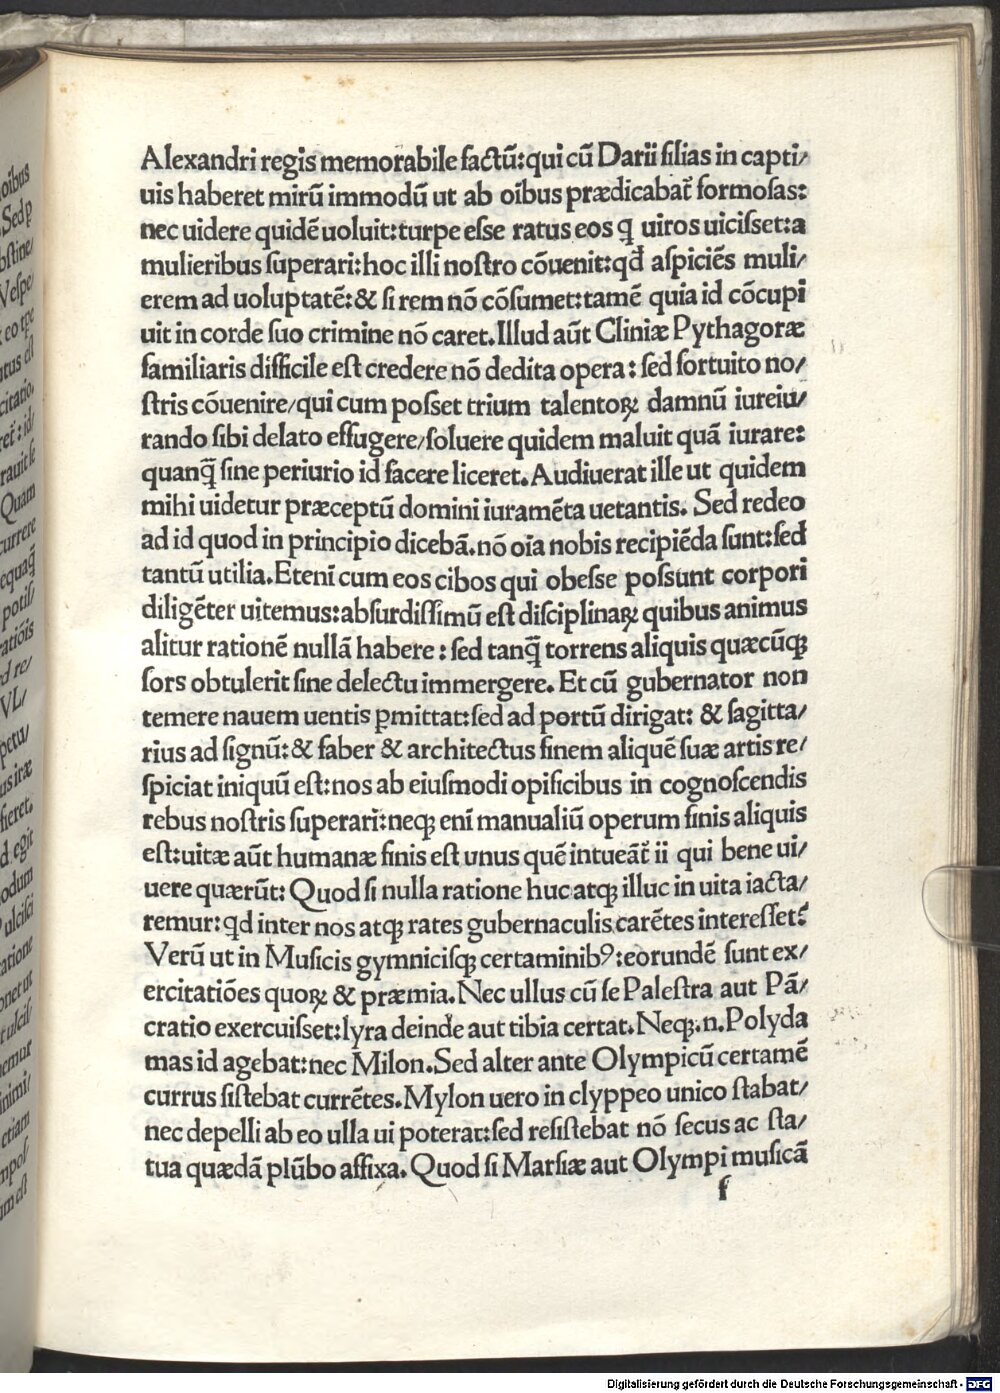 Alexandri regis memorabile factū:qui cū Darii filias in capti/
uis haberet mirū immodū ut ab oībus prædicabat̄ formosas:
nec uidere quidē uoluit:turpe esse ratus eos q̄ uiros uicisset:a
mulieribus superari:hoc illi nostro cōuenit:qđ aspiciēs muli/
erem ad uoluptatē:& si rem nō cōsumet:tamē quia id cōcupi
uit in corde suo crimine nō caret.Illud aūt Cliniæ Pythagoræ
familiaris difficile est credere nō dedita opera:sed fortuito no/
stris cōuenire/qui cum posset trium talentoꝝ damnū iureiu/
rando sibi delato effugere/soluere quidem maluit quā iurare:
quanq̄ sine periurio id facere liceret.Audiuerat ille ut quidem
mihi uidetur præceptū domini iuramēta uetantis. Sed redeo
ad id quod in principio dicebā.nō oīa nobis recipiēda sunt:sed
tantū utilia.Etenī cum eos cibos qui obesse possunt corpori
diligēter uitemus:absurdissimū est disciplinaꝝ quibus animus
alitur rationē nullā habere:sed tanq̄ torrens aliquis quæcūqꝫ
sors obtulerit sine delectu immergere. Et cū gubernator non
temere nauem uentis ꝑmittat:sed ad portū dirigat: & sagitta/
rius ad signū:& faber & architectus finem aliquē suæ artis re/
spiciat iniquū est:nos ab eiusmodi opificibus in cognoscendis
rebus nostris superari:neqꝫ enī manualiū operum finis aliquis
est:uitæ aūt humanæ finis est unus quē intueāt̄ ii qui bene ui/
uere quærūt: Quod si nulla ratione huc atqꝫ illuc in uita iacta/
remur:qd inter nos atqꝫ rates gubernaculis carētes interesset?
Verū ut in Musicis gymnicisqꝫ certaminibꝰ:eorundē sunt ex/
ercitatiōes quoꝝ & præmia. Nec ullus cū se Palestra aut Pā/
cratio exercuisset:lyra deinde aut tibia certat.Neqꝫ.n.Polyda
mas id agebat:nec Milon.Sed alter ante Olympicū certamē
currus sistebat currētes.Mylon uero in clyppeo unico stabat/
nec depelli ab eo ulla ui poterat:sed resistebat nō secus ac sta/
tua quædā plūbo affixa. Quod si Marsiæ aut Olympi musicā
f
Digitalisierung gefördert durch die Deutsche Forschungsgemeinschaft - DFG